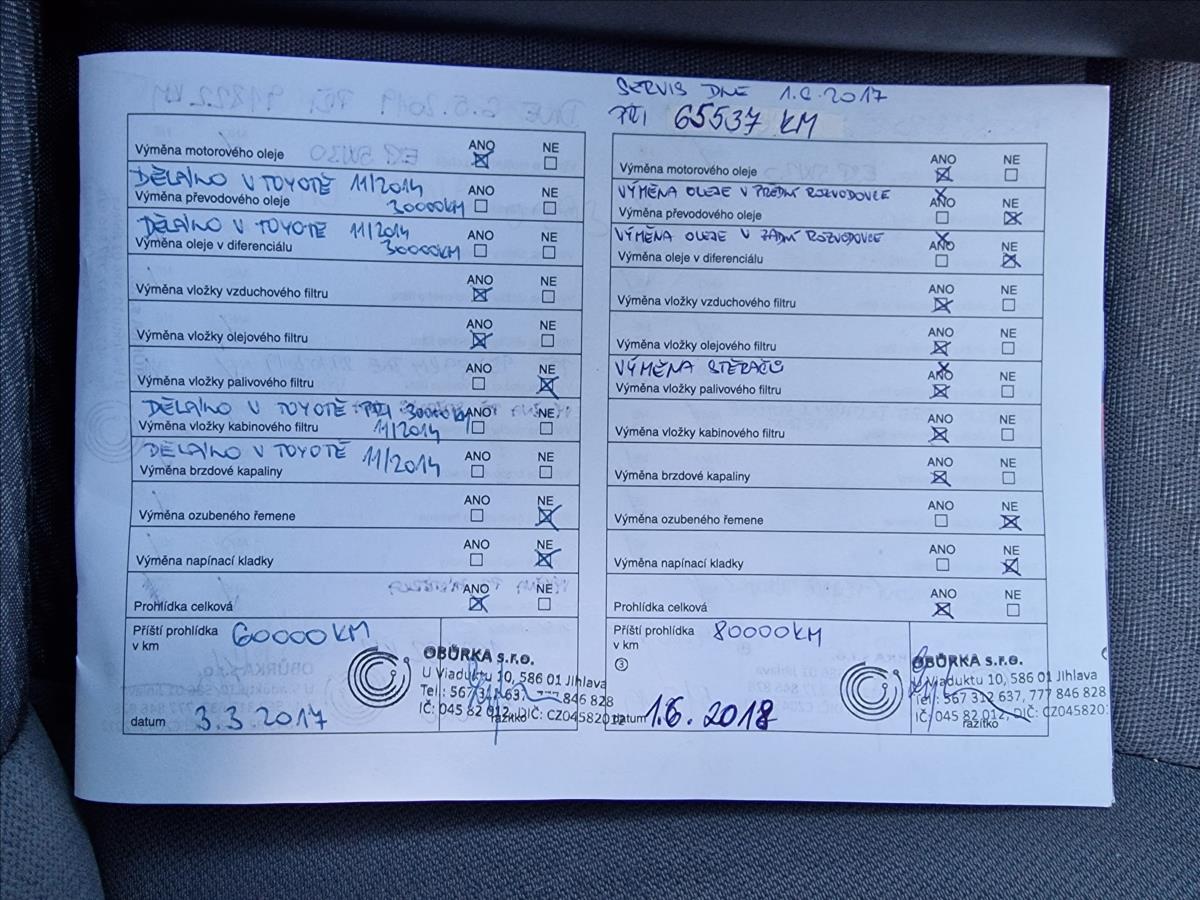 Výměna motorového oleje ANO NE
DĚLÁNO V TOYOTĚ 11/2014
Výměna převodového oleje 30000KM ANO NE
DĚLÁNO V TOYOTĚ 11/2014
Výměna oleje v diferenciálu 30000KM ANO NE
Výměna vložky vzduchového filtru ANO NE
Výměna vložky olejového filtru ANO NE
Výměna vložky palivového filtru ANO NE
DĚLÁNO V TOYOTĚ PŘI 30000 KM
Výměna vložky kabinového filtru 11/2014 ANO NE
DĚLÁNO V TOYOTĚ 11/2014
Výměna brzdové kapaliny ANO NE
Výměna ozubeného řemene ANO NE
Výměna napínací kladky ANO NE
Prohlídka celková ANO NE
Příští prohlídka 60000KM
v km
OBŮRKA s.r.o.
U Viaduktu 10, 586 01 Jihlava
Tel.: 567 312 637, 777 846 828
IČ: 045 82 012, DIČ: CZ04582012
datum 3.3.2017 razítko
SERVIS DNE 1.6.2017
PŘI 65537 KM
Výměna motorového oleje ANO NE
VÝMĚNA OLEJE V PŘEDNÍ ROZVODOVCE X
Výměna převodového oleje ANO NE
VÝMĚNA OLEJE V ZADNÍ ROZVODOVCE X
Výměna oleje v diferenciálu ANO NE
Výměna vložky vzduchového filtru ANO NE
Výměna vložky olejového filtru ANO NE
VÝMĚNA STĚRAČŮ X
Výměna vložky palivového filtru ANO NE
Výměna vložky kabinového filtru ANO NE
Výměna brzdové kapaliny ANO NE
Výměna ozubeného řemene ANO NE
Výměna napínací kladky ANO NE
Prohlídka celková ANO NE
Příští prohlídka 80000KM
v km
3
OBŮRKA s.r.o.
U Viaduktu 10, 586 01 Jihlava
Tel.: 567 312 637, 777 846 828
IČ: 045 82 012, DIČ: CZ045820
datum 1.6.2018 razítko